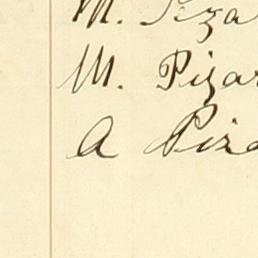 M. Piza
M. Pizar
A Piza